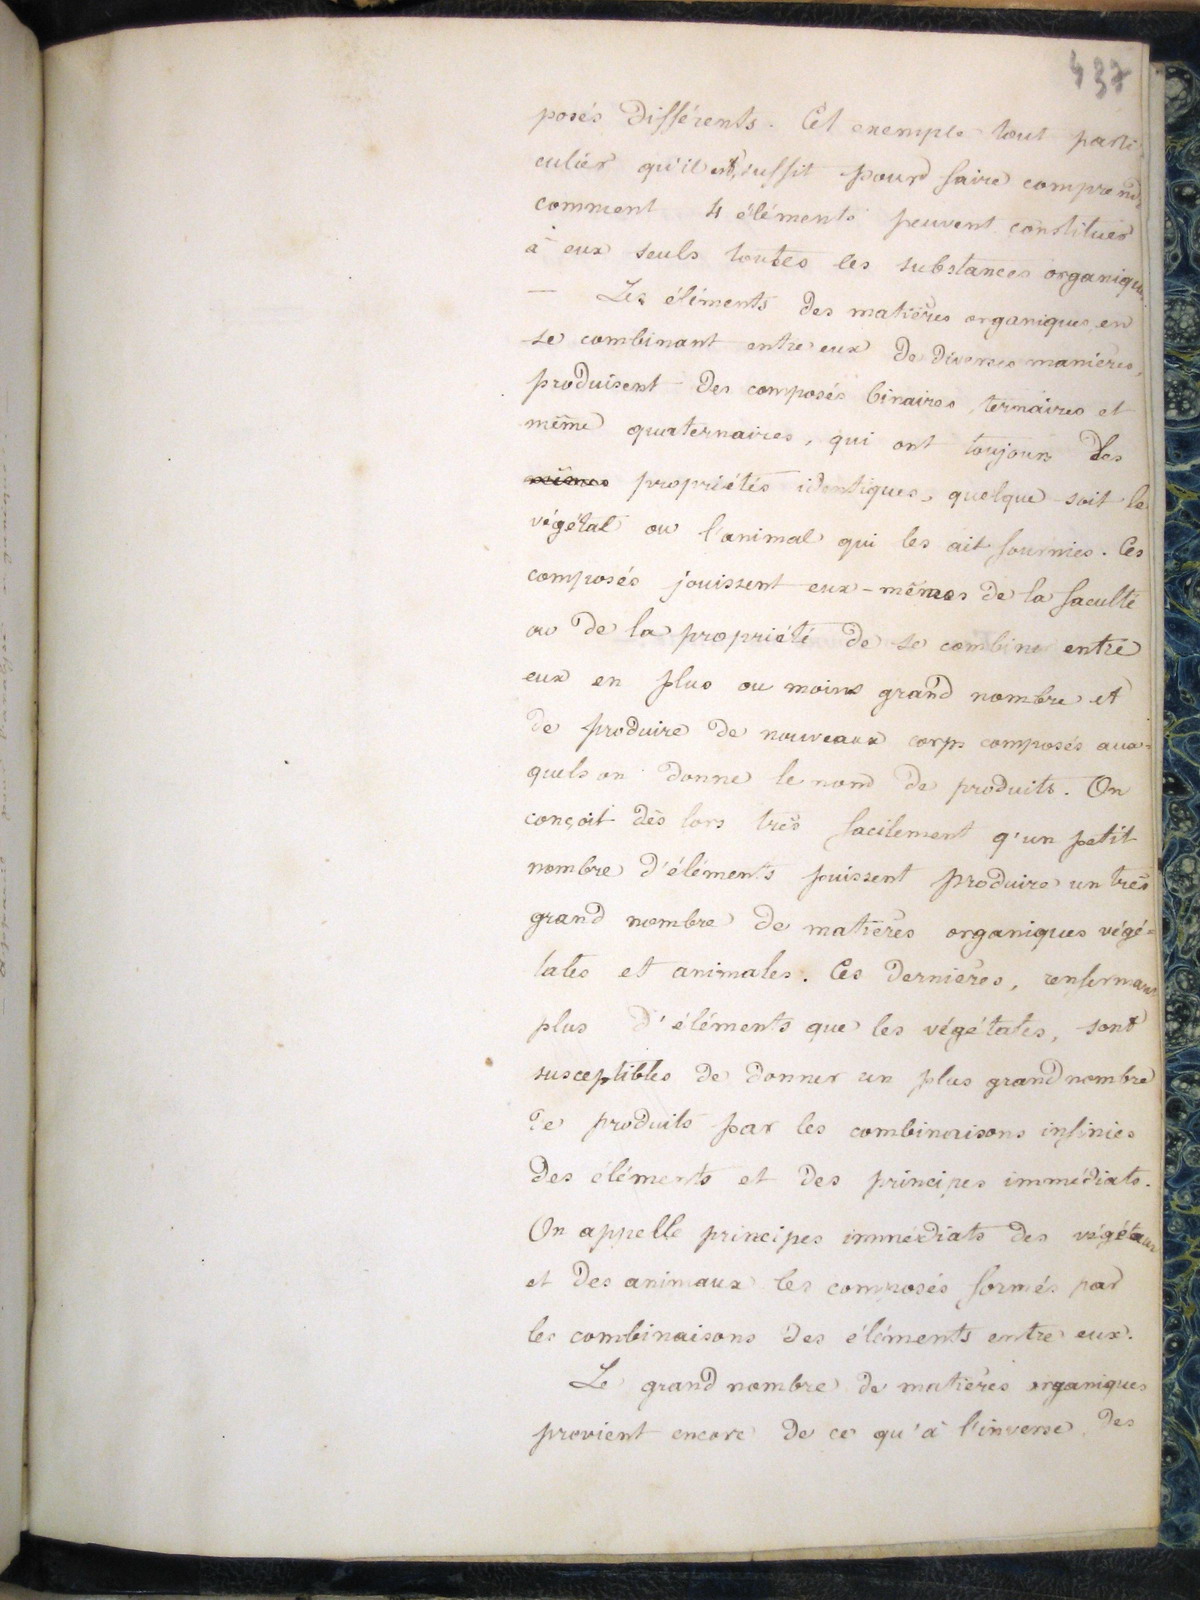 437
posés différents. Cet exemple tout parti
culier qu'il est, suffit pour faire comprend
comment 4 éléments peuvent constituer
à eux seuls toutes les substances organiques
— Les éléments des matières organiques, en
se combinant entre eux de diverses manières,
produisent des composés binaires, ternaires et
même quaternaires, qui ont toujours des
mêmes propriétés identiques, quelque soit le
végétal ou l'animal qui les ait fournies. Ces
composés jouissent eux-mêmes de la faculté
ou de la propriété de se combiner entre
eux en plus ou moins grand nombre et
de produire de nouveaux corps composés aux-
quels on donne le nom de produits. On
conçoit dès lors très facilement q'un petit
nombre d'éléments puissent produire un très
grand nombre de matières organiques végé=
tales et animales. Ces dernières, renfermant
plus d'éléments que les végétales, sont
susceptibles de donner un plus grand nombre
de produits par les combinaisons infinies
des éléments et des principes immédiats.
On appelle principes immédiats des végétaux
et des animaux les composés formés par
les combinaisons des éléments entre eux.
Le grand nombre de matières organiques
provient encore de ce qu'à l'inverse des